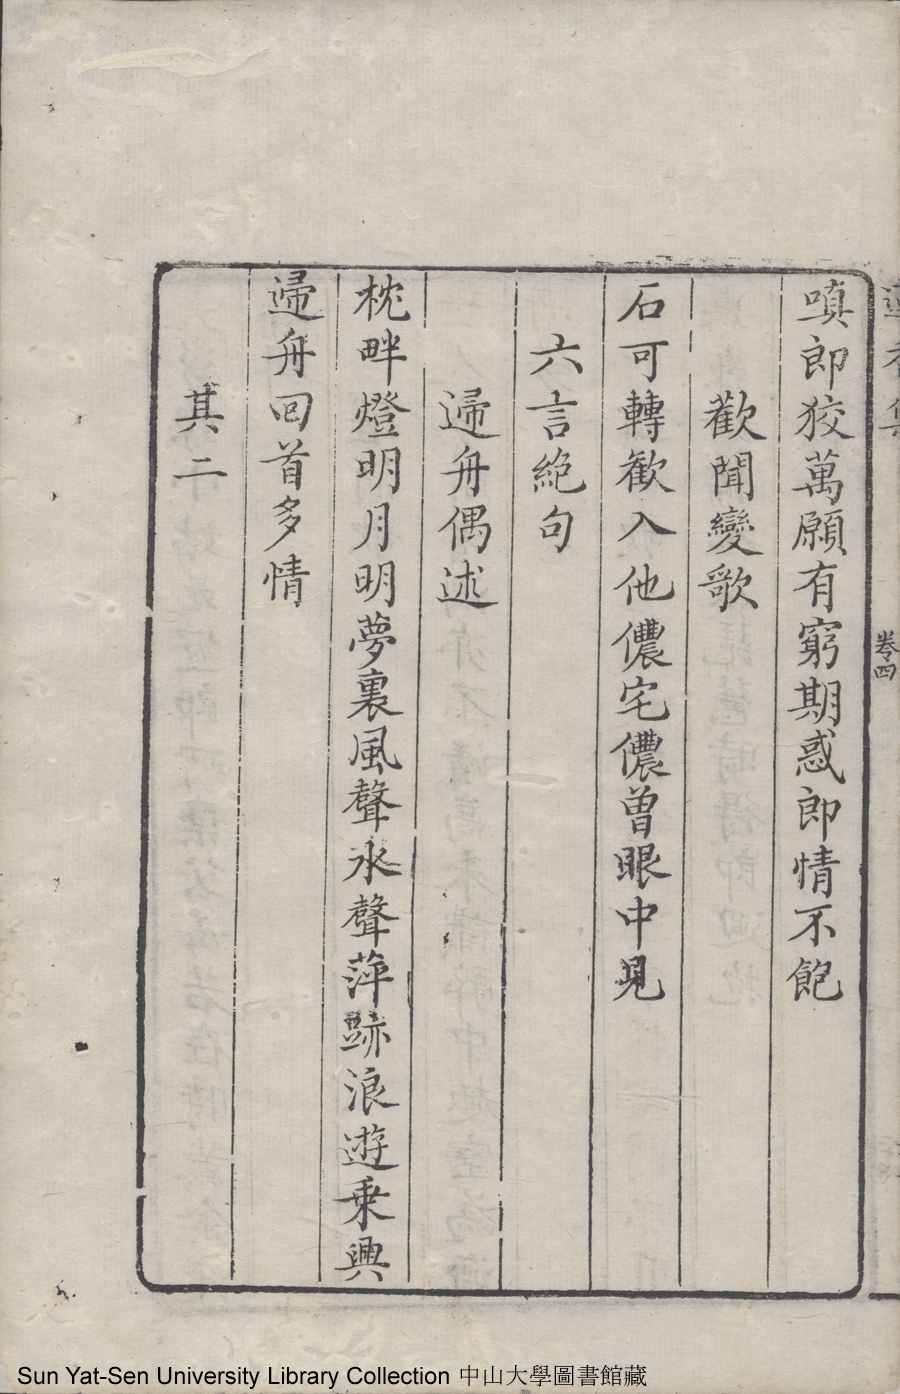 嗔郎狡萬願有窮期惑郎情不飽
歡聞變歌
石可轉歡入他儂宅儂曾眼中見
六言絕句
歸舟偶述
枕畔燈明月明夢裏風聲水聲萍跡浪遊乗興
歸舟回首多情
其二
卷四
Sun Yat-Sen University Library Collection 中山大學圖書館藏